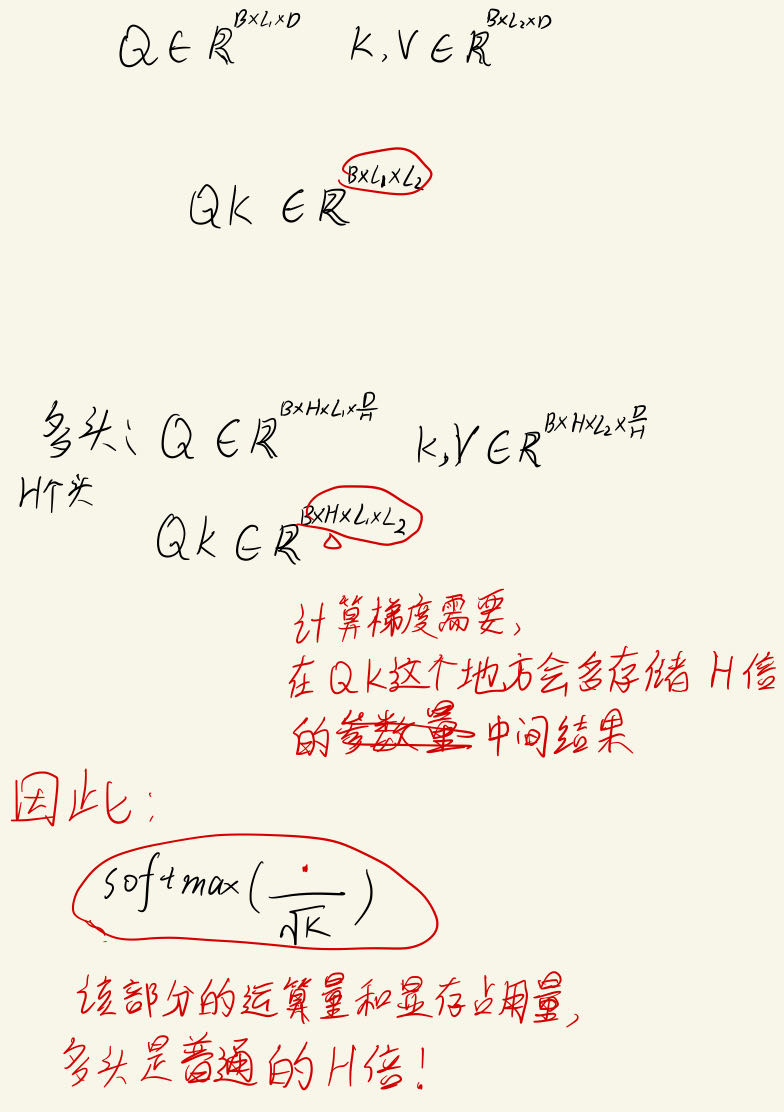 Q ∈ ℝ^{B×L₁×D} K,V ∈ ℝ^{B×L₂×D}
QK ∈ ℝ^{B×L₁×L₂}
多头: Q ∈ ℝ^{B×H×L₁×D/H} K,V ∈ ℝ^{B×H×L₂×D/H}
H个头
QK ∈ ℝ^{B×H×L₁×L₂}
计算梯度需要,
在QK这个地方会多存储 H倍
的参数量 中间结果
因此:
softmax(·/√K)
该部分的运算量和显存占用量,
多头是普通的H倍!